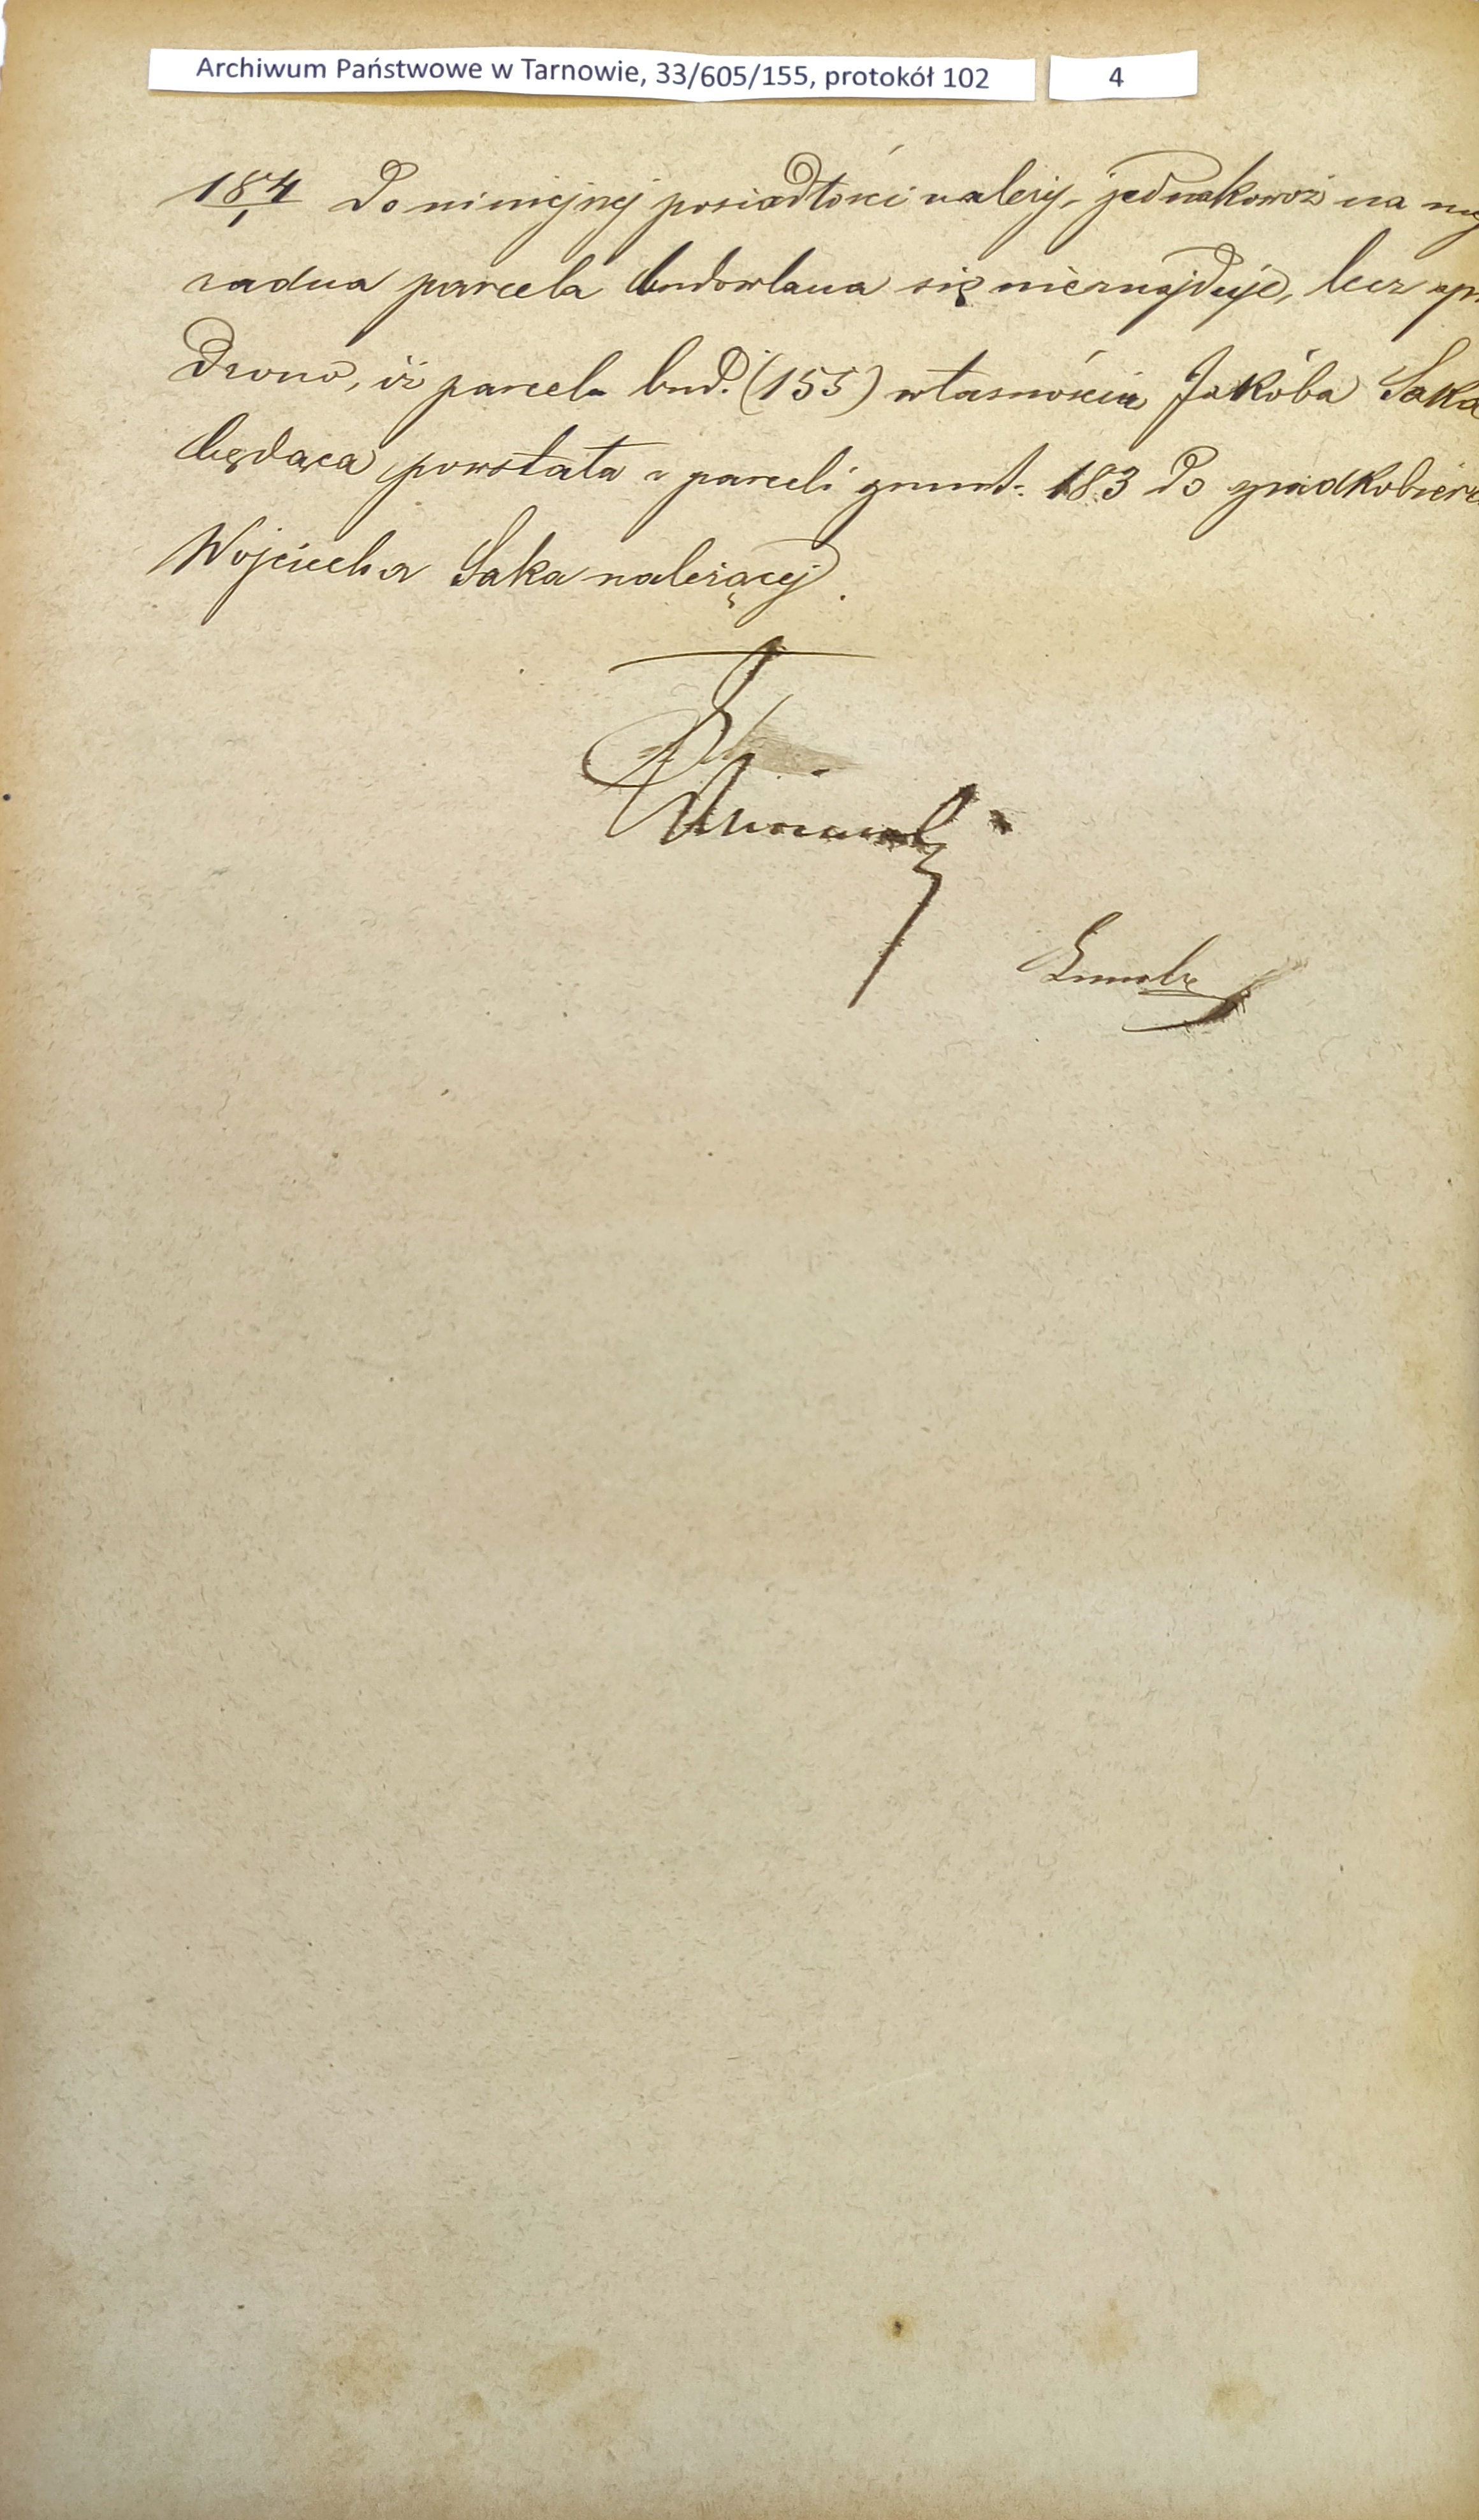 Archiwum Państwowe w Tarnowie, 33/605/155, protokół 102 4
184/1 Do niniejszej posiadłości należy, jednakowoż na
żadna parcela budowlana się nieznajduje, lecz
dzono, iż parcela bud. (155) własnością Jakóba Saka
będąca powstała z parceli grunt. 183 do spadkobierc
Wojciecha Saka należącej.